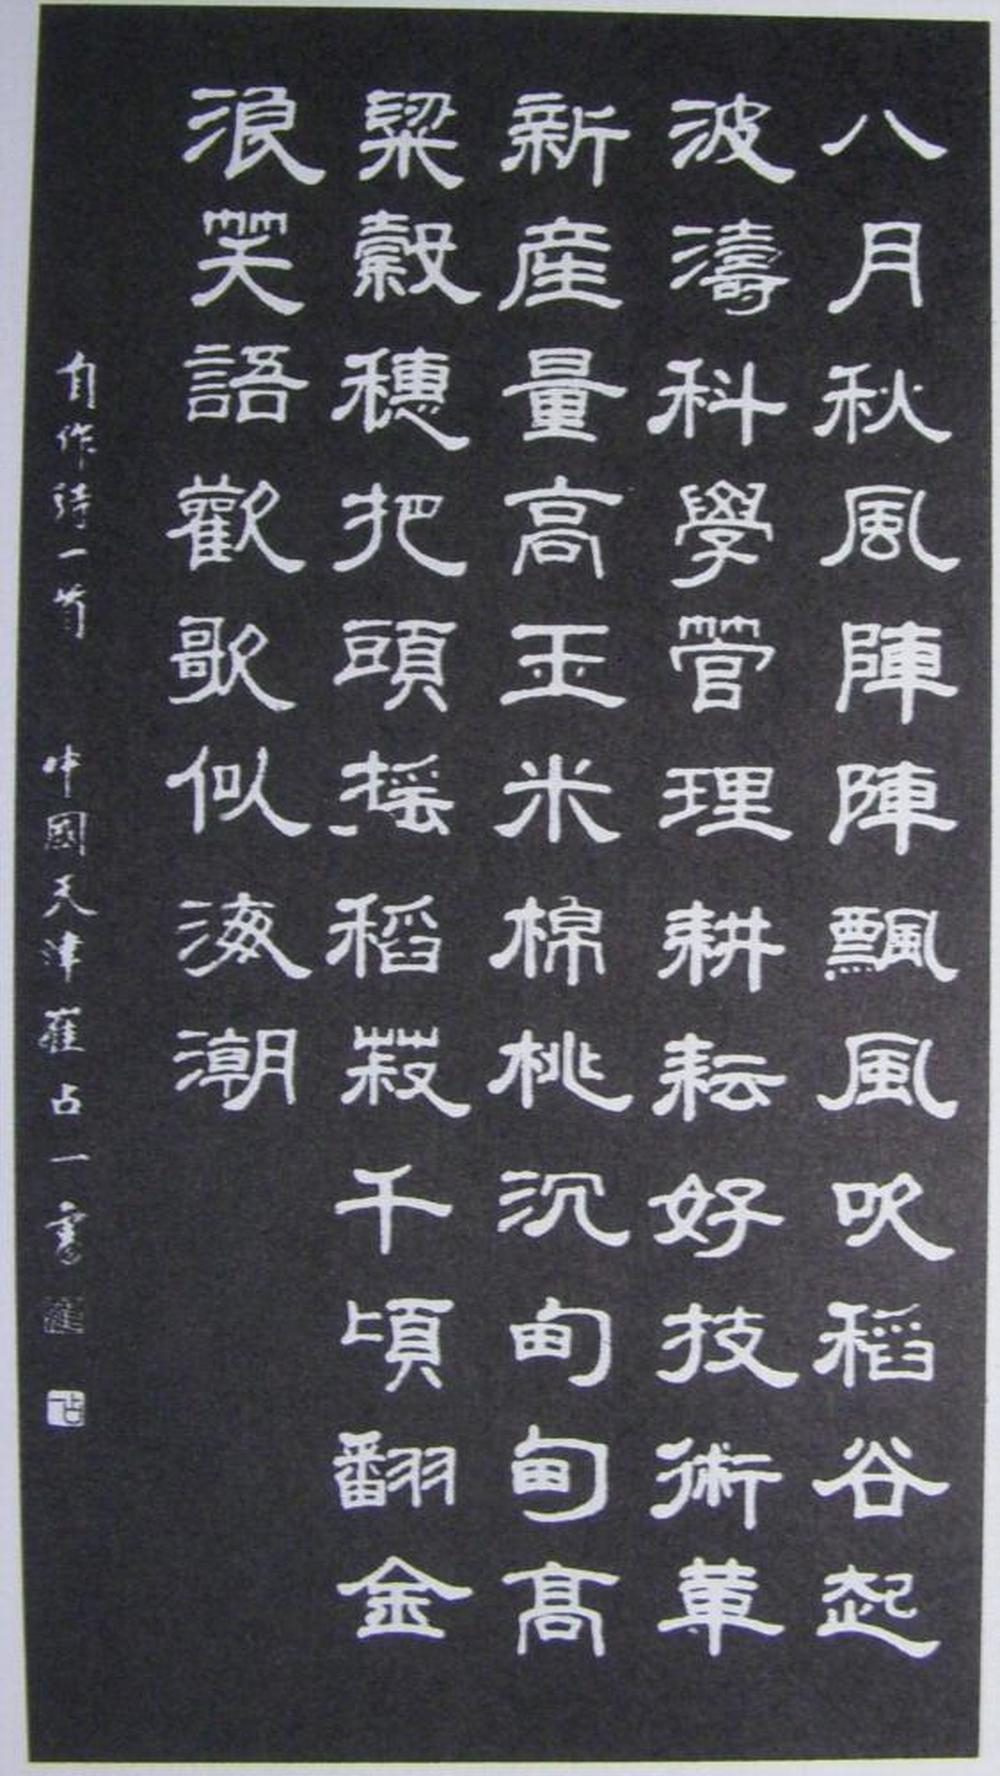 八月秋風陣陣飄風吹稻谷起
波濤科學管理耕耘好技術革
新産量高玉米棉桃沉甸甸高
粱穀穗把頭摇稻菽千頃翻金
浪笑語歡歌似海潮
自作詩一首 中國天津崔占一書